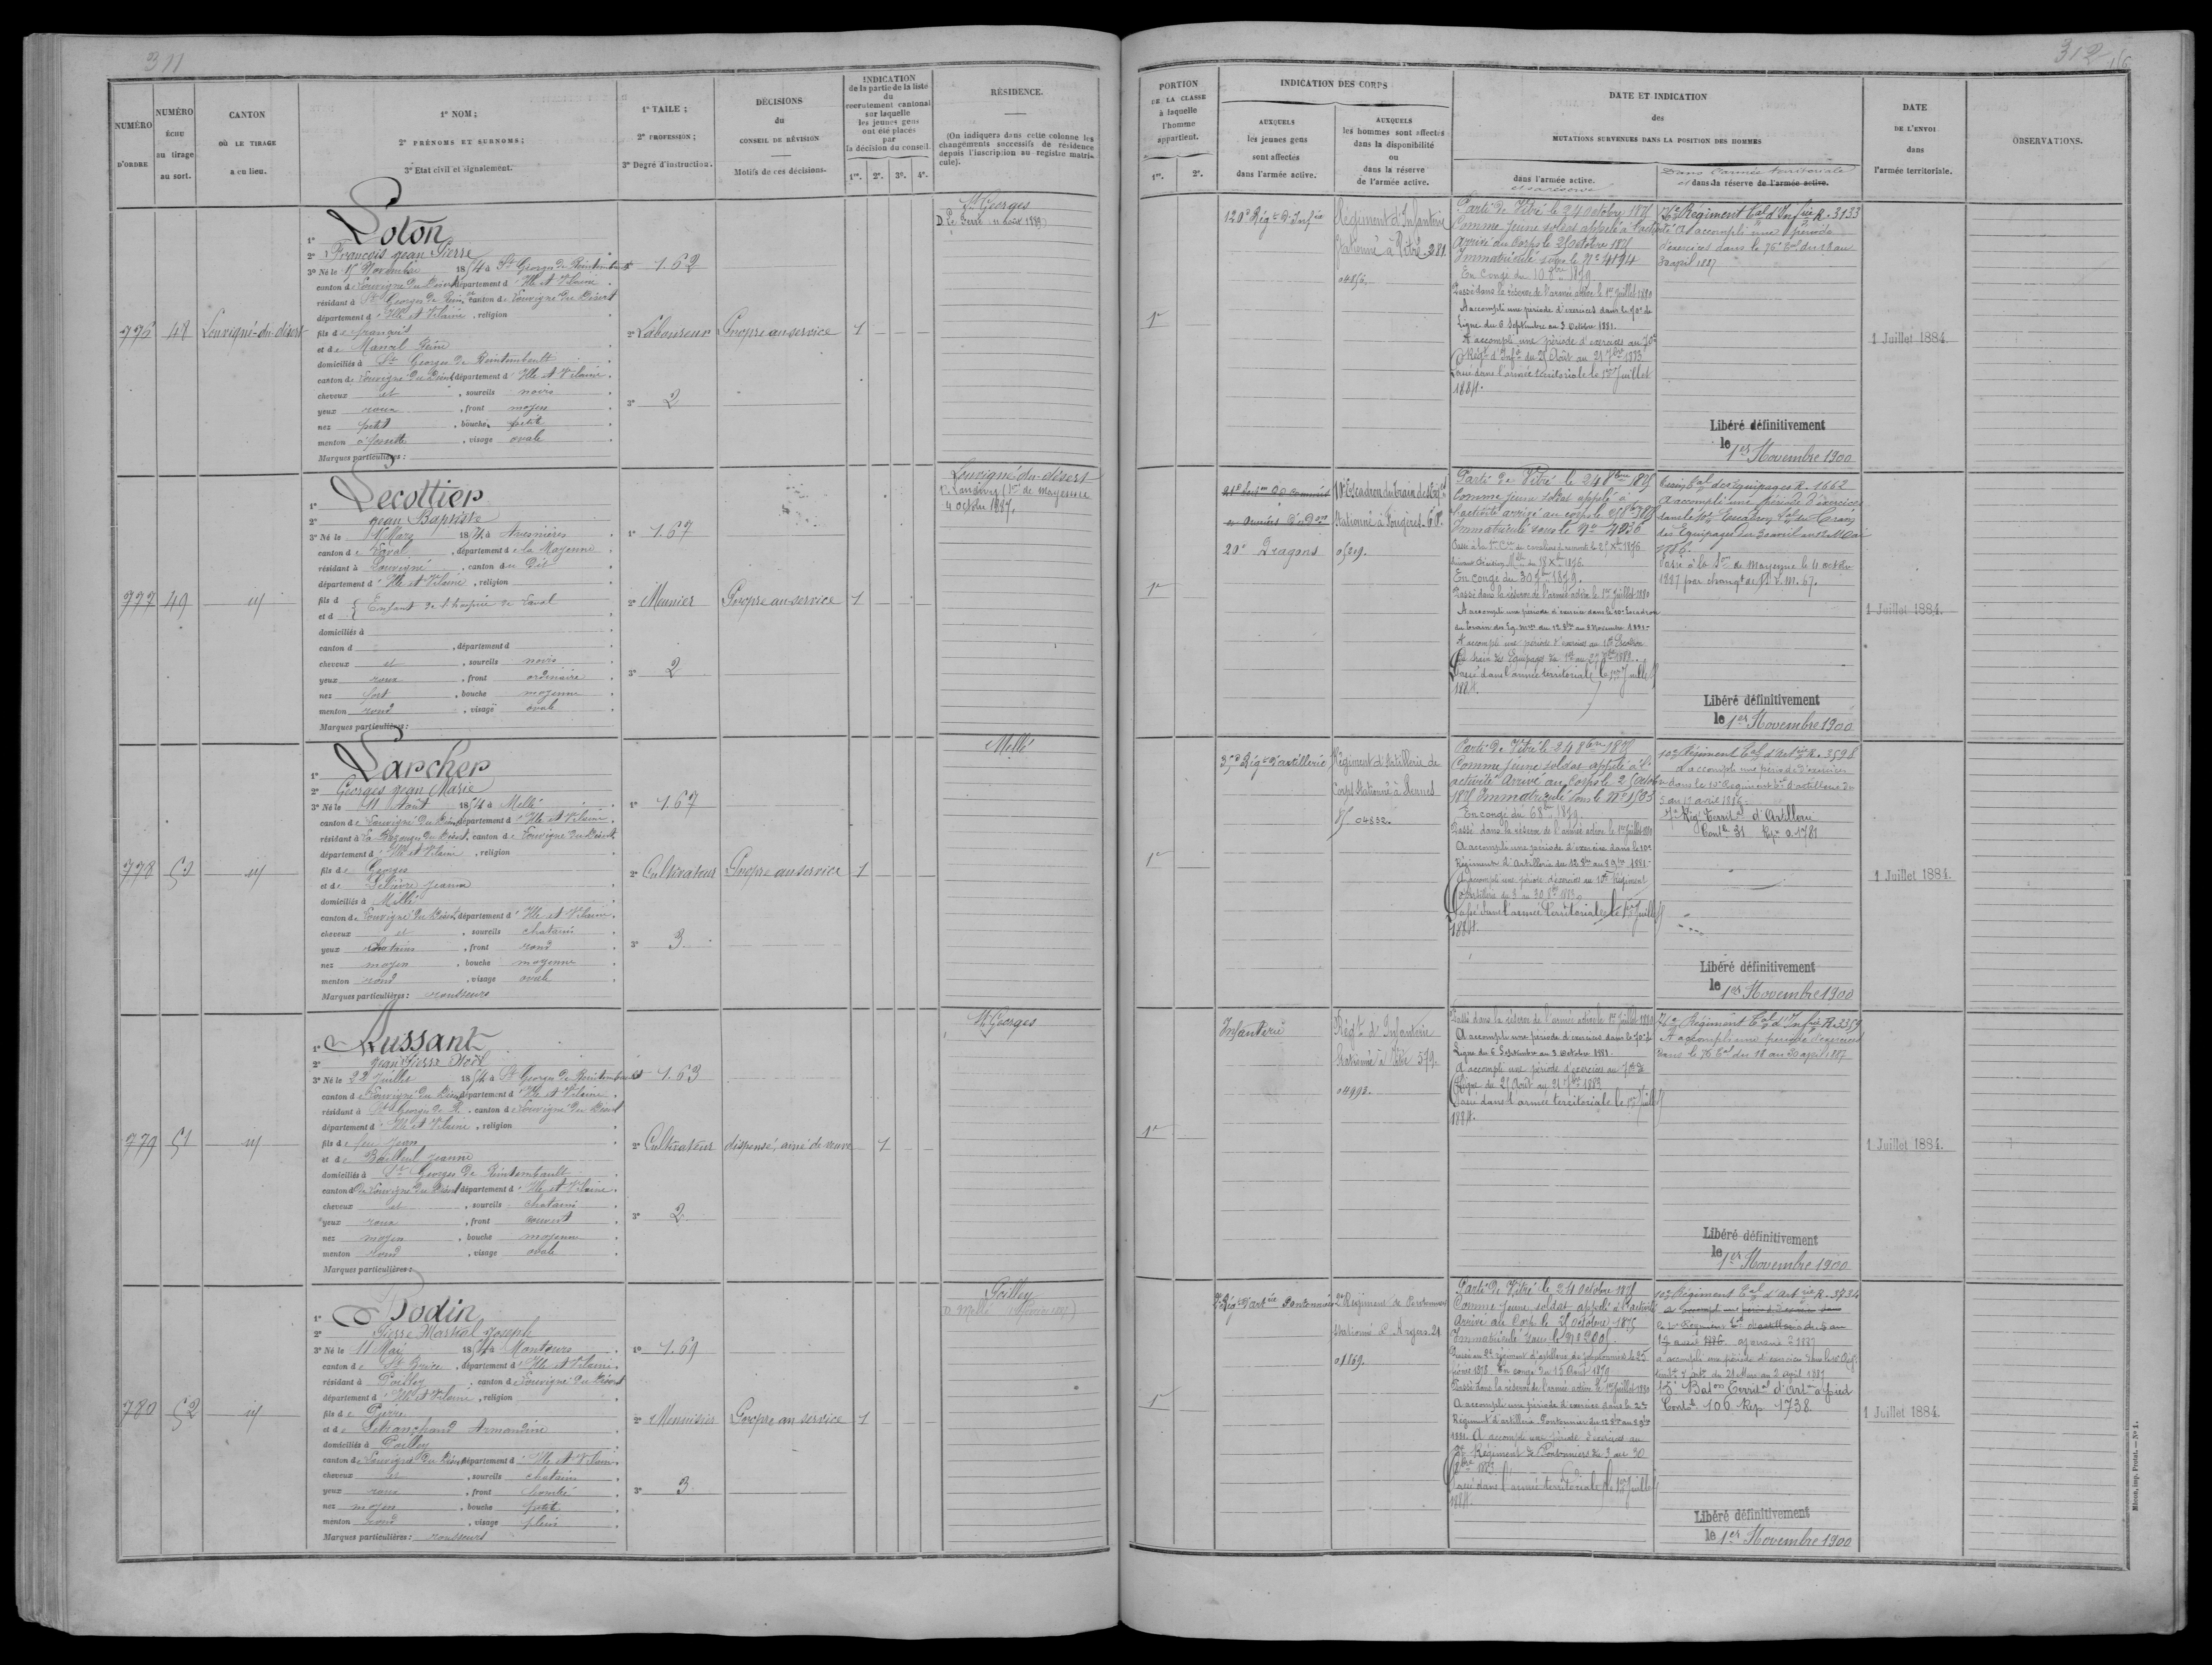 311
NUMÉRO
D'ORDRE
NUMÉRO
ÉCHU
au tirage
au sort.
CANTON
OÙ LE TIRAGE
a eu lieu.
1° NOM;
2° PRÉNOMS ET SURNOMS;
3° État civil et signalement.
1° TAILE;
2° PROFESSION;
3° Degré d'instruction.
DÉCISIONS
du
CONSEIL DE RÉVISION
Motifs de ces décisions.
INDICATION
de la partie de la liste
du
recrutement cantonal
sur laquelle
les jeunes gens
ont été placés
par
la décision du conseil.
1re. 2e. 3e. 4e.
RÉSIDENCE.
(On indiquera dans cette colonne les
changements successifs de résidence
depuis l'inscription au registre matri-
cule).
776
48
Louvigné-du-désert
1° Loton
2° François Jean Pierre
3° Né le 15 Novembre 1854 à St Georges de Reintembault
canton de Louvigné du Désert département d'Ille et Vilaine
résidant à St Georges de Rein. canton de Louvigné du Désert
département d'Ille et Vilaine, religion
fils de François
et de
domiciliés à St Georges de Reintembault
canton de Louvigné du Désert département d'Ille et Vilaine
cheveux et, sourcils noirs
yeux roux, front moyen
nez petit, bouche petite
menton à fossette, visage ovale
Marques particulières:
1.62
2° Laboureur
3° 2
Propre au service
1
St Georges
777
49
id
1° Lecottier
2° Jean Baptiste
3° Né le Mars 1854 à
canton de Laval, département de la Mayenne
résidant à Louvigné, canton du Dit
département d'Ille et Vilaine, religion
fils d
et d
Enfant de l'hospice de Laval
domiciliés à
canton d, département d
cheveux et, sourcils noirs
yeux roux, front ordinaire
nez fort, bouche moyenne
menton rond, visage ovale
Marques particulières:
1° 1.67
2° Meunier
3° 2
Propre au service
1
Louvigné-du-désert
de Mayenne
4 octobre 1887.
778
50
id
1° Larcher
2° Georges Jean Marie
3° Né le 11 Août 1854 à Mellé
canton de Louvigné du Désert département d'Ille et Vilaine
résidant à La Bazouge du Désert, canton de Louvigné du Désert
département d'Ille et Vilaine, religion
fils de Georges
et de Lelièvre Jeanne
domiciliés à Mellé
canton de Louvigné du Désert, département d'Ille et Vilaine
cheveux et, sourcils chatains
yeux chatains, front rond
nez moyen, bouche moyenne
menton rond, visage ovale
Marques particulières: rousseurs
1° 1.67
2° Cultivateur
3° 3
Propre au service
1
Mellé
779
51
id
1° Russant
2° Jean Pierre Noël
3° Né le 22 Juillet 1854 à St Georges de Reintembault
canton de Louvigné du Désert département d'Ille et Vilaine
résidant à St Georges de R. canton de Louvigné du Désert
département d'Ille et Vilaine, religion
fils de feu Jean
et de Bailleul Jeanne
domiciliés à St Georges de Reintembault
canton de Louvigné du Désert département d'Ille et Vilaine
cheveux et, sourcils chatains
yeux roux, front couvert
nez moyen, bouche moyenne
menton rond, visage ovale
Marques particulières:
1.63
2° Cultivateur
3° 2
dispensé, ainé de veuve
1
St Georges
780
52
id
1° Bodin
2° Pierre Martial Joseph
3° Né le 11 Mai 1854 à Montours
canton de St Brice, département d'Ille et Vilaine
résidant à Poilley, canton de Louvigné du Désert
département d'Ille et Vilaine, religion
fils de Pierre
et de Armandine
domiciliés à Poilley
canton de Louvigné du Désert département d'Ille et Vilaine
cheveux et, sourcils chatains
yeux roux, front bombé
nez moyen, bouche petite
menton rond, visage plein
Marques particulières: rousseurs
1° 1.69
2° Menuisier
3° 3
Propre au service
1
Poilley
312
PORTION
DE LA CLASSE
à laquelle
l'homme
appartient.
1re. 2e.
INDICATION DES CORPS
AUXQUELS
les jeunes gens
sont affectés
dans l'armée active.
AUXQUELS
les hommes sont affectés
dans la disponibilité
ou
dans la réserve
de l'armée active.
DATE ET INDICATION
des
MUTATIONS SURVENUES DANS LA POSITION DES HOMMES
dans l'armée active.
et sa réserve
Dans l'armée territoriale
et dans la réserve de l'armée active.
DATE
DE L'ENVOI
dans
l'armée territoriale.
OBSERVATIONS.
1re
120e Régt d'Infie
Régiment d'Infanterie
stationné à Vitré. 281
04856.
Parti de Vitré le 24 octobre 1875
Comme jeune soldat appelé à l'activité
arrivé au corps le 25 octobre 1875
Immatriculé sous le N° 4194
En congé du 10 8bre 1879
Passé dans la réserve de l'armée active le 1er Juillet 1880
A accompli une période d'exercices dans le 70e de
Ligne du 6 Septembre au 3 Octobre 1881.
A accompli une période d'exercices au 70e
Régt d'Infie du 25 Août au 21 7bre 1883
Passé dans l'armée territoriale le 1er Juillet
1884.
76e Régiment Tal d'Infie R. 3133
A accompli une période
d'exercices dans le 76e Tal du 18 au
30 avril 1887
Libéré définitivement
le 1er Novembre 1900
1 Juillet 1884.
1re
20e Dragons
10e Escadron du train des Eqes
stationné à Fougères.
05219.
Parti de Vitré le 24 8bre 1875
Comme jeune soldat appelé à
l'activité arrivé au corps le 25 8bre 1875
Immatriculé sous le N° 7036
En congé du 30 7bre 1879.
Passé dans la réserve de l'armée active le 1er Juillet 1880
A accompli une période d'exercices dans le 10e Escadron
du train des Eq. mres du 12 8bre au 8 Novembre 1881
A accompli une période d'exercices au 10e Escadron
du train des Equipages
Passé dans l'armée territoriale le 1er Juillet
1884.
Train Tal des Equipages R. 1662
A accompli une période d'exercices
dans le 10e Escadron Tal du Train
des Equipages du 30 avril au 12 Mai
1886.
Passé à la Son de Mayenne le 4 octobre
1887 par changt de
Libéré définitivement
le 1er Novembre 1900
1 Juillet 1884.
1re
35e Régt d'artillerie
Régiment d'artillerie de
Corps stationné à Rennes
04832.
Parti de Vitré le 24 8bre 1875
Comme jeune soldat appelé à l'
activité arrivé au Corps le 25 octobre
1875 Immatriculé sous le N° 1583
En congé du 6 8bre 1879.
Passé dans la réserve de l'armée active le 1er Juillet 1880
A accompli une période d'exercices dans le 10e
Régiment d'Artillerie du 12 8bre au 8 9bre 1881
A accompli une période d'exercices au 10e Régiment
d'Artillerie du 3 au 30 8bre 1883
Passé dans l'armée territoriale le 1er Juillet
1884.
10e Régiment Tal d'Artie R. 3598
A accompli une période d'exercices
dans le 10e Régiment Tal d'artillerie du
5 au 17 avril 1886
Régt Territal d'Artillerie
Contle 31 Rep. 1781
Libéré définitivement
le 1er Novembre 1900
1 Juillet 1884.
1re
Infanterie
Régt d'Infanterie
stationné à Vitré 379.
04993.
Passé dans la réserve de l'armée active le 1er Juillet 1880
A accompli une période d'exercices dans le 70e de
Ligne du 6 Septembre au 3 Octobre 1881.
A accompli une période d'exercices au 70e de
Ligne du 25 Août au 21 7bre 1883
Passé dans l'armée territoriale le 1er Juillet
1884.
76e Régiment Tal d'Infie R. 3359
A accompli une période d'exercices
dans le 76e Tal du 18 au 30 avril 1887
Libéré définitivement
le 1er Novembre 1900
1 Juillet 1884.
1re
Régt d'artie Pontonniers
2e Régiment de Pontonniers
stationné à Angers. 21
01869.
Parti de Vitré le 24 octobre 1875
Comme jeune soldat appelé à l'activité
Arrivé au Corps le 25 octobre 1875
Immatriculé sous le N° 2001
Passé au 2e régiment d'artillerie de pontonniers le 25
février 1878. En congé du 15 Août 1879
Passé dans la réserve de l'armée active le 1er Juillet 1880
A accompli une période d'exercices dans le 2e
Régiment d'artillerie Pontonniers du 12 8bre au 8 9bre
1881. A accompli une période d'exercices au
2e Régiment de Pontonniers du 3 au 30
8bre 1883.
Passé dans l'armée territoriale le 1er Juillet
1884.
10e Régiment Tal d'Artie R. 3734
A accompli une période d'exercices dans
le 10e Régiment Tal d'artillerie du 5 au
17 avril 1886 ajourné à 1887
a accompli une période d'exercices dans le 10e Régt
du 21 Mars au 2 avril 1887
Baton Territal d'Artie à pied
Contle 106 Rep. 1738.
Libéré définitivement
le 1er Novembre 1900
1 Juillet 1884.
Mâcon, imp. Protat. — N° 1.